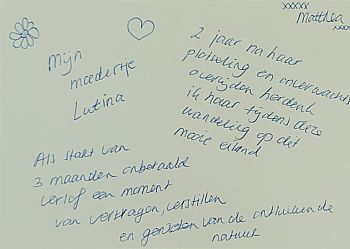 Mijn
moedertje
Lutina
2 jaar na haar
plotseling en onverwachts
overlijden herdenk
ik haar tijdens deze
wandeling op dit
mooie eiland
xxxxx
Matthea
xxxx
Als start van
3 maanden onbetaald
verlof een moment
van vertragen, verstillen
en genieten van de ontluikende
natuur